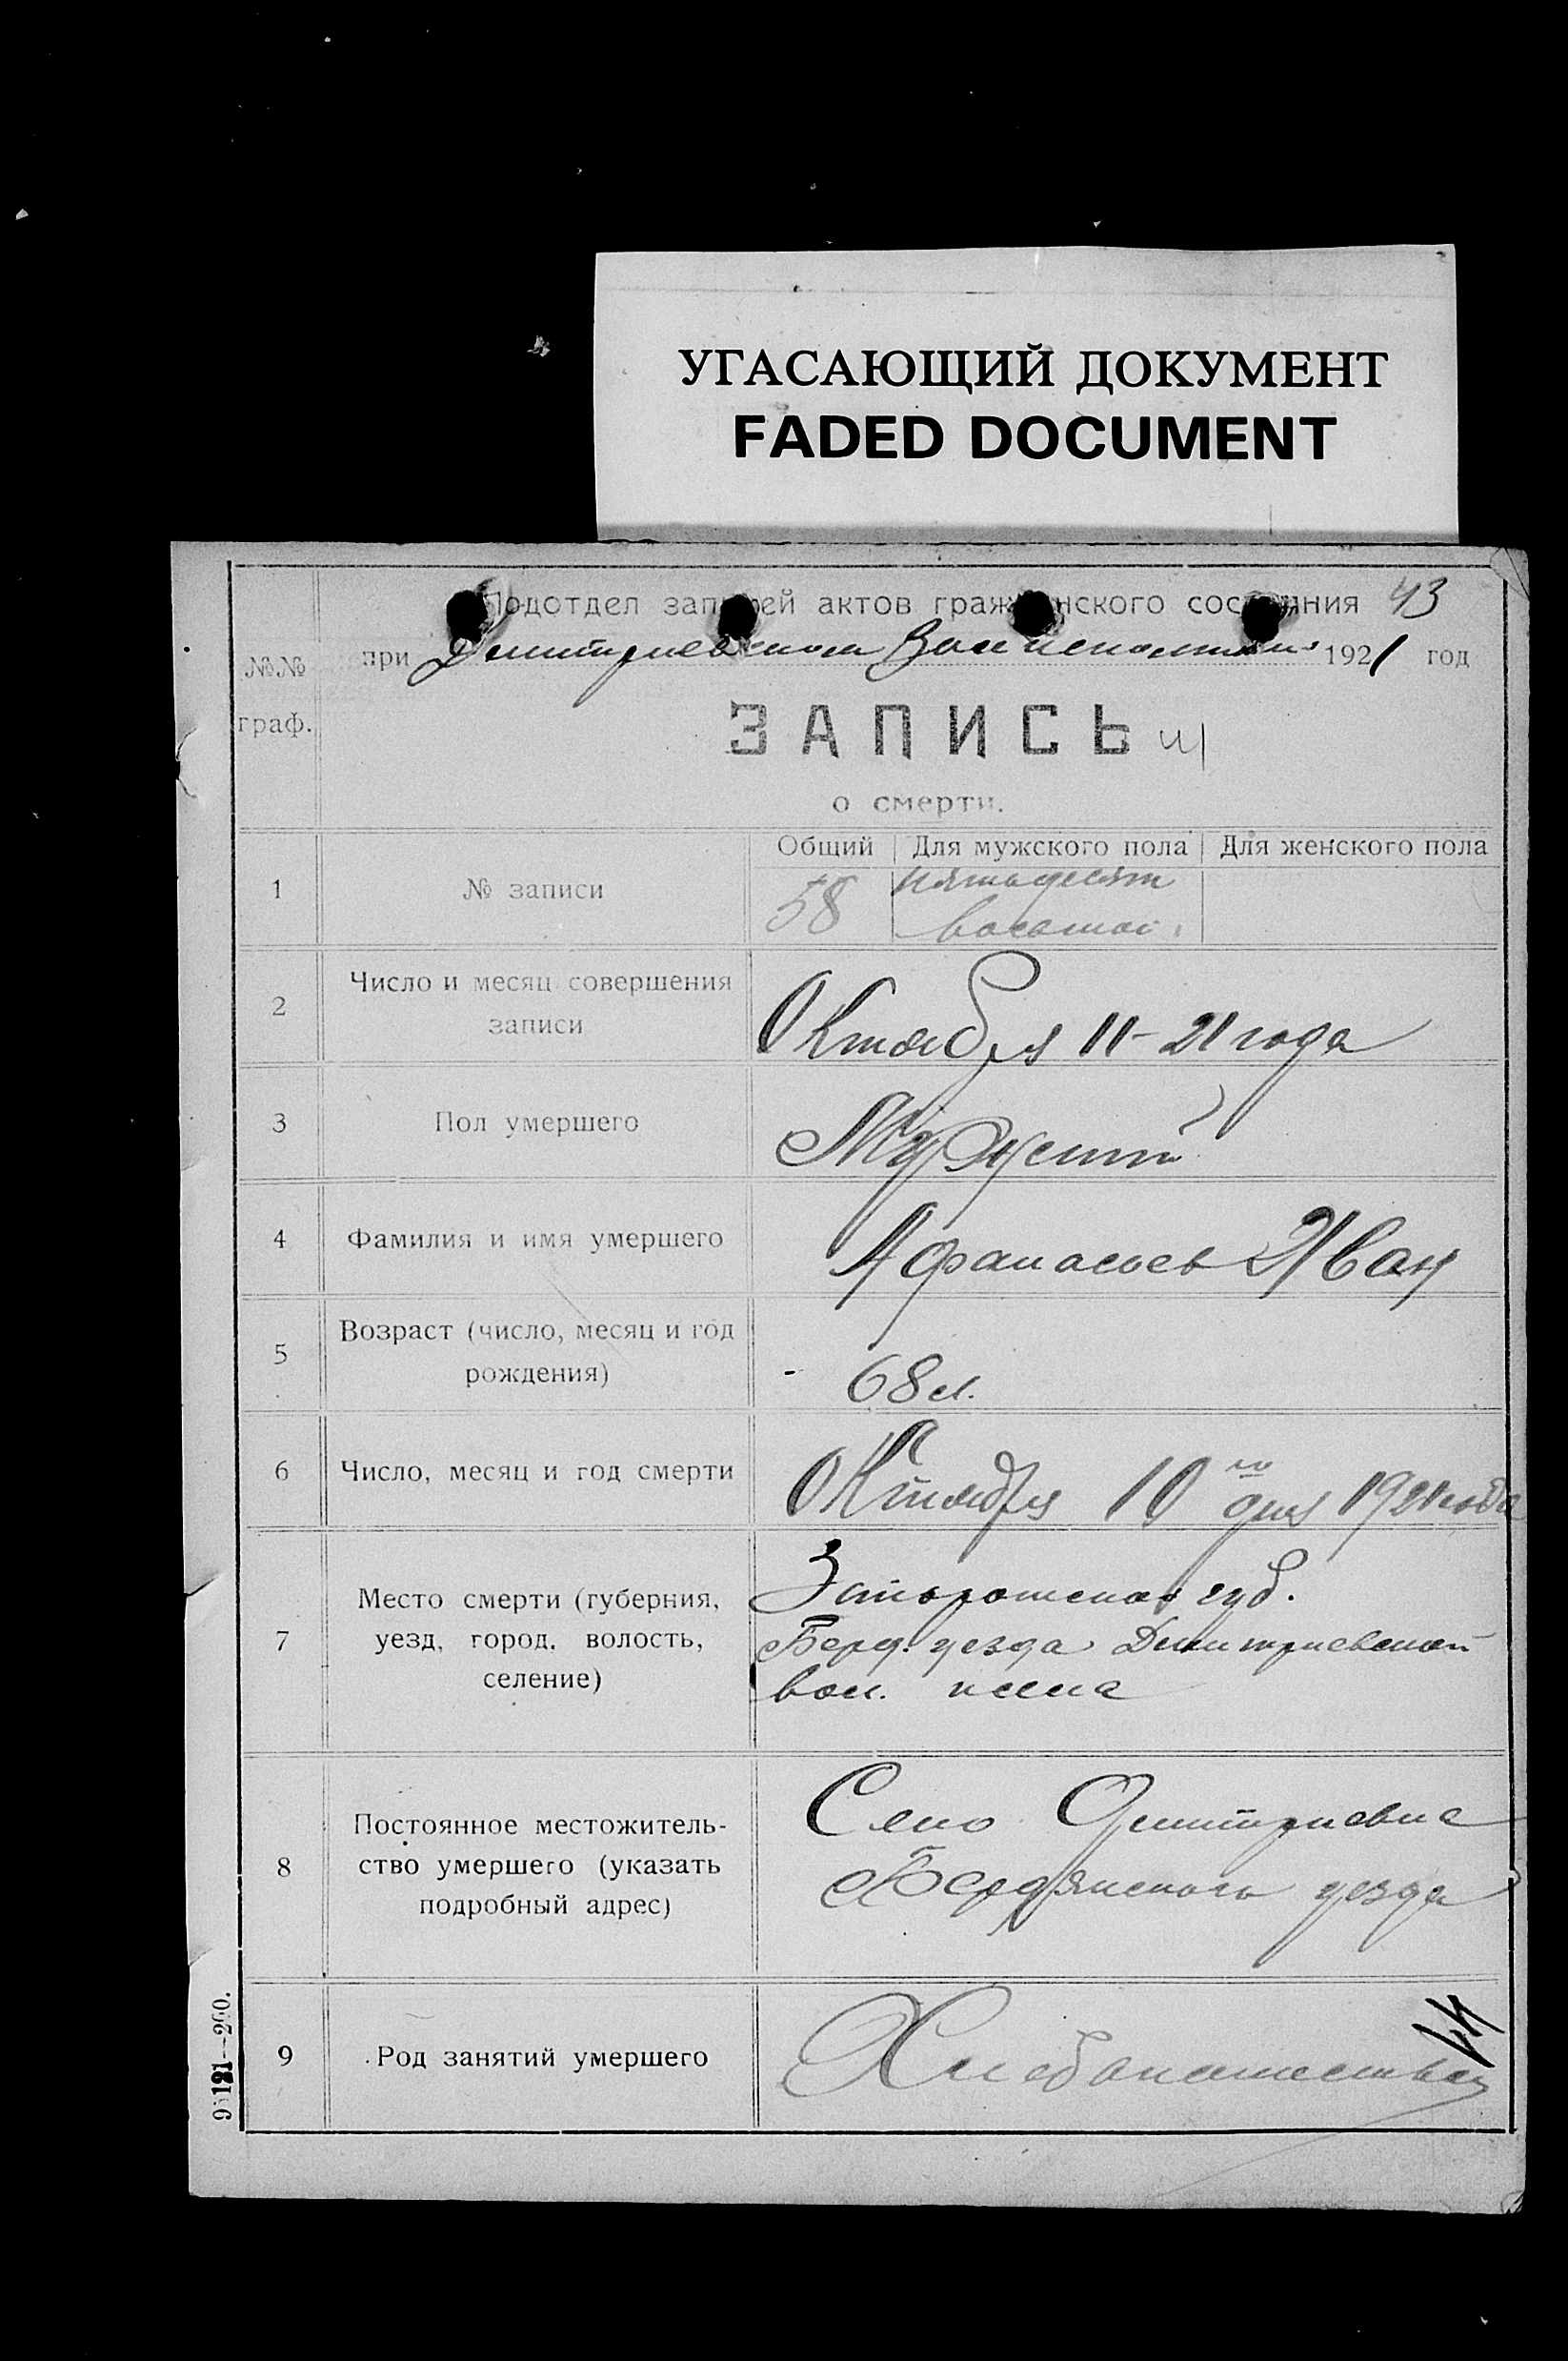 УГАСАЮЩИЙ ДОКУМЕНТ
FADED DOCUMENT
Подотдел записей актов гражданского состояния 43
при Димитриевском Волисполкоме 1921 год
№№
граф.
ЗАПИСЬ
о смерти.
Общий Для мужского пола Для женского пола
1 № записи 58 пятьдесят
восьмой
2 Число и месяц совершения
записи
Октября 11-21 года
3 Пол умершего Мужеский
4 Фамилия и имя умершего Афанасьев Иван
5 Возраст (число, месяц и год
рождения)
- 68 л.
6 Число, месяц и год смерти Октября 10го дня 1921 года
7 Место смерти (губерния,
уезд, город, волость,
селение)
Запорожская губ.
Берд. уезда Димитриевской
вол.
8 Постоянное местожитель-
ство умершего (указать
подробный адрес)
Село Димитриевка
Бердянского уезда
9 Род занятий умершего Хлебопашество